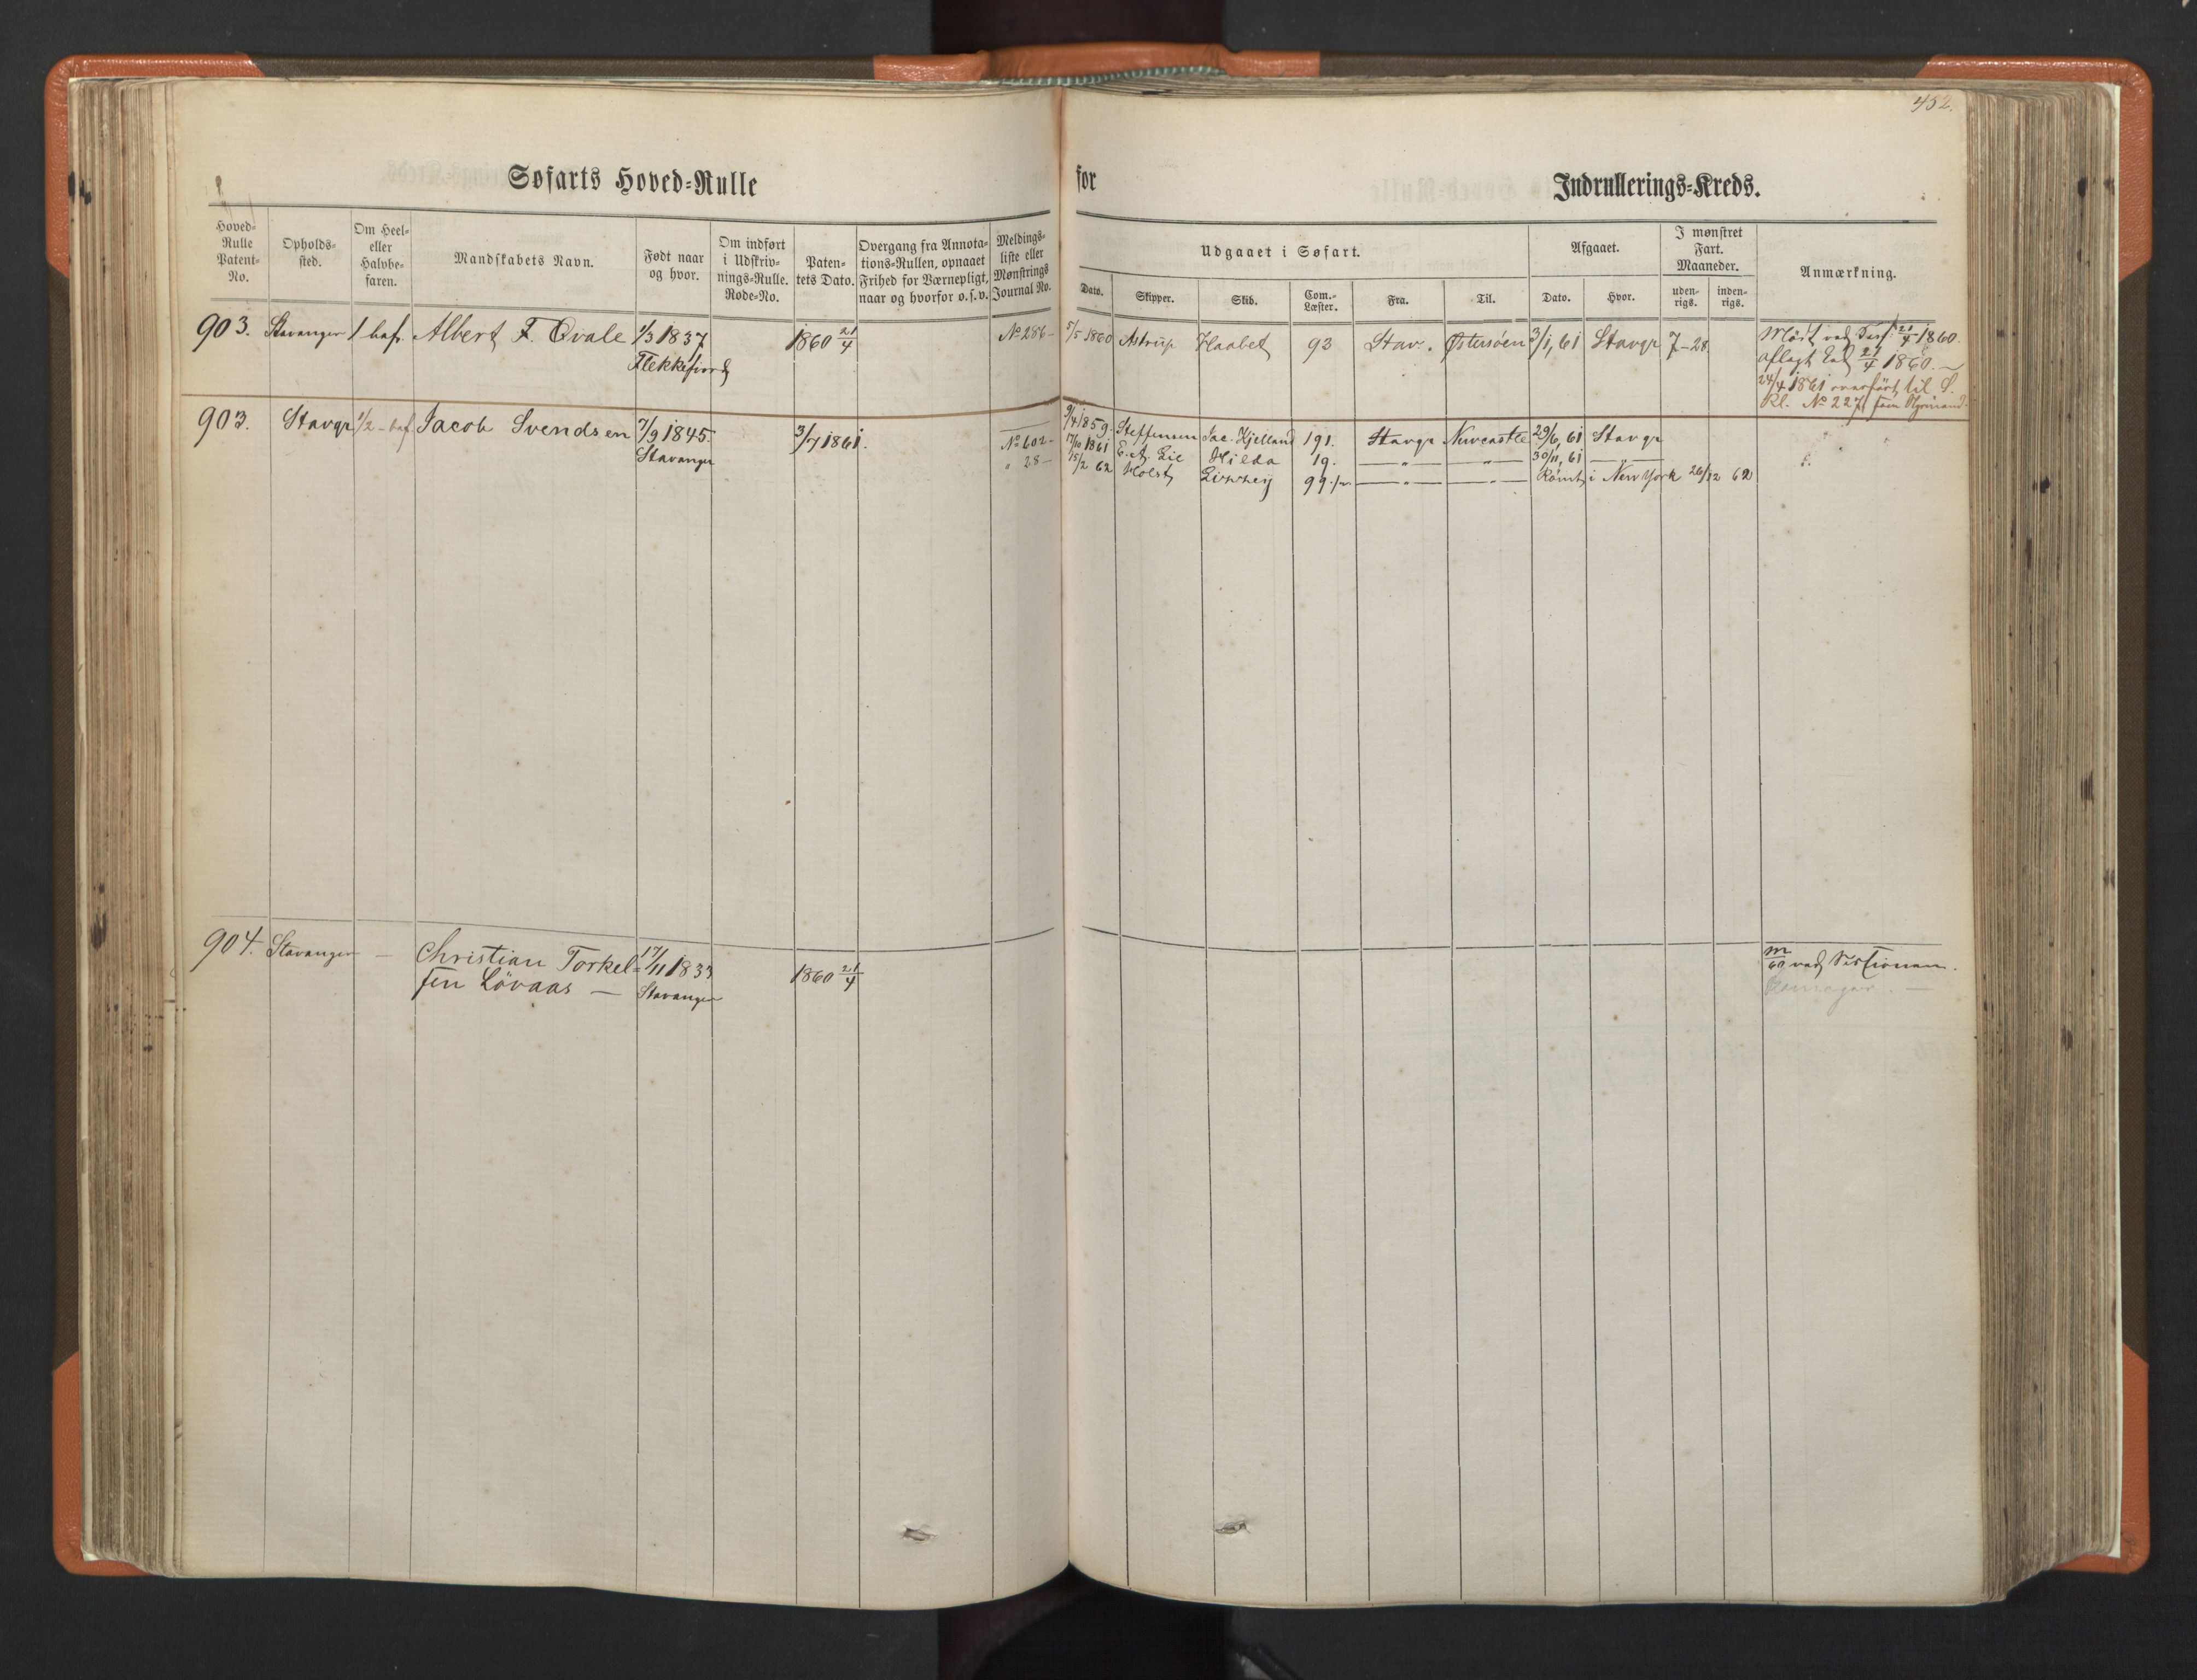 452.
Søfarts Hoved-Rulle for Indrullerings-Kreds.
Hoved-Rulle Patent-No.
Opholds-sted.
Om Heel- eller Halvbe-faren.
Mandskabets Navn.
Født naar og hvor.
Om indført i Udskriv-nings-Rulle. Rode-No.
Paten-tets Dato.
Overgang fra Annota-tions-Rullen, opnaaet Frihed for Værnepligt, naar og hvorfor o.s.v.
Meldings-liste eller Mønstrings Journal No.
Udgaaet i Søfart.
Dato. Skipper. Skib. Com.-Læster. Fra. Til.
Afgaaet.
Dato. Hvor.
I mønstret Fart. Maaneder.
uden-rigs. inden-rigs.
Anmærkning.
903. Stavanger 1 bef. Albert F. Qvale 1/3 1837 1860 21/4 No 286 - 5/5 1860 Astrup Haabet 93 Stav. Østersöen 3/1, 61 Stavgr 7-28 Mödt ved Sess. 21/4 1860.
Flekkefiord
aflagt Eed 21/4 1860.
24/4 1861 overfört til S.
Rl. No 227 som Styrmand.
903. Stavgr 1/2 - bef Jacob Svendsen 7/9 1845. 3/7 1861. 9/4 1859 Steffensen Jac. Kjelland 191. Stavgr Newcastle 29/6, 61 Stavgr
Stavanger No 602 - 17/10 1861 E. A. Lie Hilda 19. — " — — " — 30/11, 61 — " —
" 28 - 15/2 62 Holst 99 — " — — " — Römt i New York 26/12 62
904. Stavanger — Christian Torkel= 17/11 1833 1860 21/4 M/60 ved Sessionen.
sen Lövaas — Stavanger